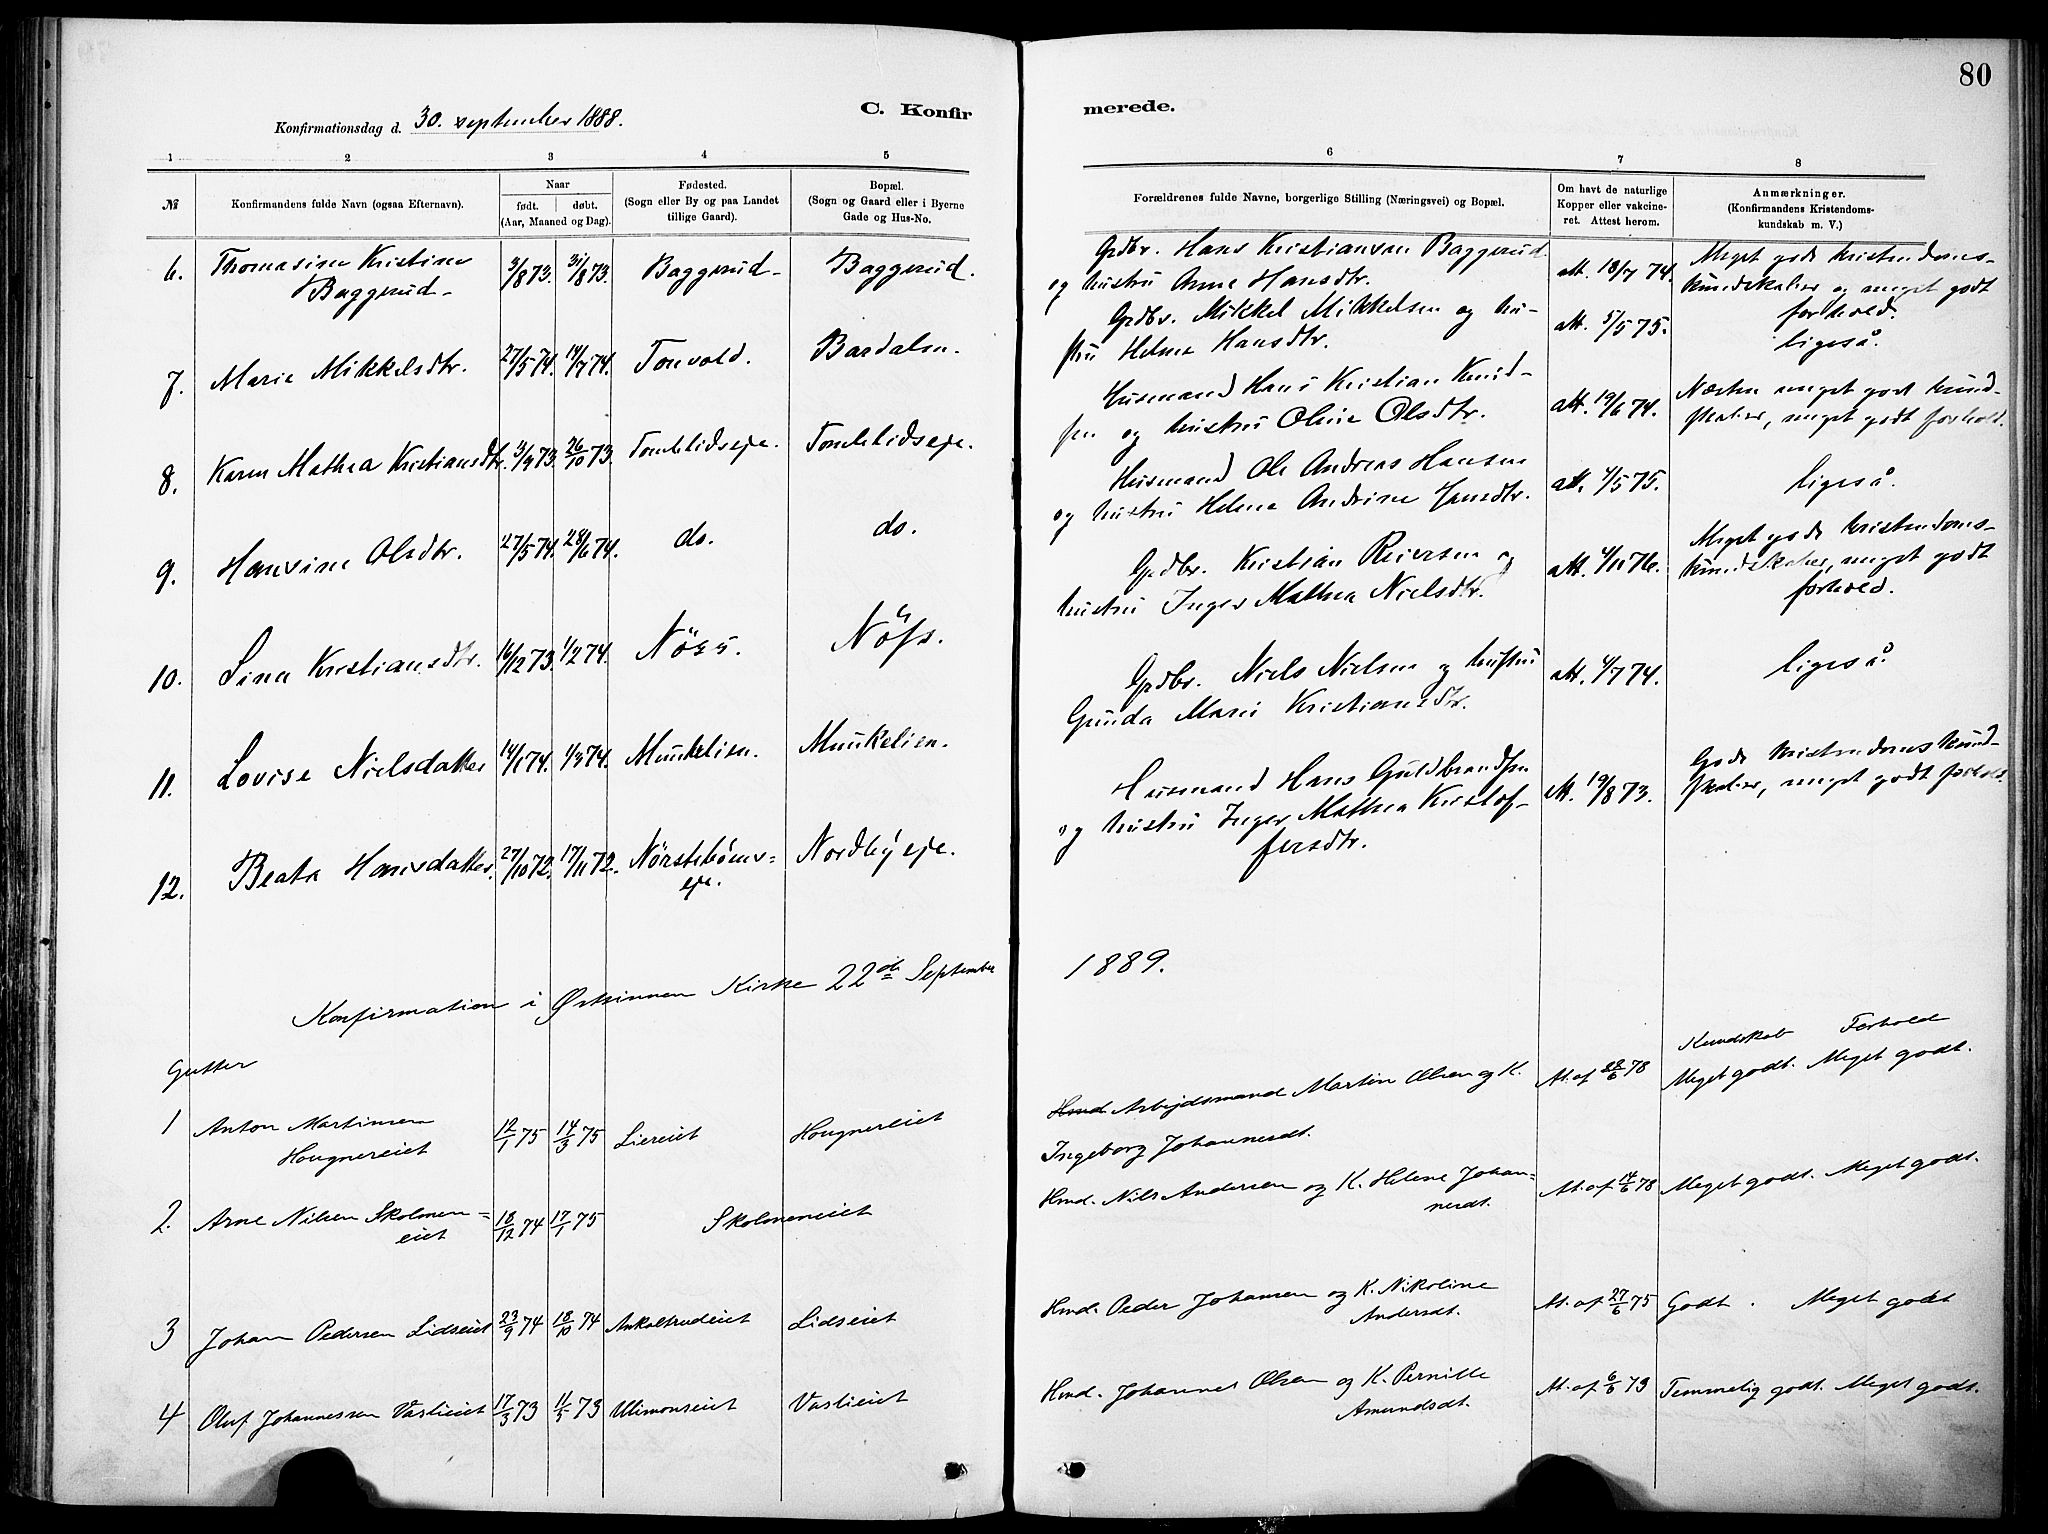 80
Konfirmationsdag d. 30. september 1888.
C. Konfir
merede.
1 2 3 4 5
6 7 8
№
Konfirmandens fulde Navn (ogsaa Efternavn).
Naar
født. døbt.
(Aar, Maaned og Dag).
Fødested.
(Sogn eller By og paa Landet
tillige Gaard).
Bopæl.
(Sogn og Gaard eller i Byerne
Gade og Hus-No.
Forældrenes fulde Navne, borgerlige Stilling (Næringsvei) og Bopæl.
Om havt de naturlige
Kopper eller vakcine-
ret. Attest herom.
Anmærkninger.
(Konfirmandens Kristendoms-
kundskab m. V.)
6. Thomasine Kristine 3/8 73. 31/8 73. Baggerud Baggerud.
Baggerud
Grdbr. Hans Kristiansen Baggerud
og hustru Anne Hansdtr.
att. 18/7 74.
Meget gode kristendoms-
kundskaber og meget godt
forhold.
7. Marie Mikkelsdtr. 27/5 74. 19/7 74. Tonvold. Bardalen.
Grdbr. Mikkel Mikkelsen og hu-
stru Helene Hansdtr.
att. 5/5 75.
ligeså.
8. Karen Mathea Kristiansdtr. 3/9 73. 26/10 73. Tomlidseje. Tomlidseje.
Husmand Hans Kristian Knud-
sen og hustru Oline Olsdtr.
att. 19/6 74.
Næsten meget god kund-
skaber, meget godt forhold.
9. Hansine Olsdtr. 27/5 74. 28/6 74. do. do.
Husmand Ole Andreas Hansen
og hustru Helene Andrine Hansdtr.
att. 4/5 75.
ligeså.
10. Lina Kristiansdtr. 16/12 73. 1/2 74. Nöss. Nöss.
Grdbr. Kristian Reiersen og
hustru Inger Mathea Nielsdtr.
att. 4/11 76.
Meget gode kristendoms-
kundskaber, meget godt
forhold.
11. Lovise Nielsdatter 14/1 74. 1/3 74. Munkelien. Munkelien.
Grdbr. Niels Nielsen og hustru
Gunda Marie Kristiansdtr.
att. 4/7 74.
ligeså.
12. Beata Hansdatter. 27/10 72. 17/11 72. Nørstebøns-
eje.
Nordbyeje.
Husmand Hans Guldbrandsen
og hustru Inger Mathea Kristof-
fersdtr.
att. 19/8 73.
Gode kristendomskund-
skaber, meget godt forhold
Konfirmation i Østsinnen Kirke 22de September
1889.
Gutter
Kundskab Forhold
1 Anton Martinsen 12/1 75 14/3 75 Liereiet Hougnereiet
Hougnereiet
Hmd. Arbejdsmand Martin Olsen og K.
Ingeborg Johannesdt.
At. af 28/6 78
Meget godt. Meget godt.
2. Arne Nilsen Skolmen- 18/12 74 17/1 75 Skolmeneiet
eiet
Hmd. Nils Andersen og K. Helene Johan-
nesdt.
At. af 14/6 78
Meget godt. Meget godt.
3 Johan Pedersen Lidseiet 23/9 74 18/10 74 Ankoltrudeiet Lidseiet
Hmd. Peder Johansen og K. Nikoline
Andersdt.
At. af 27/6 75
Godt. Meget godt
4 Oluf Johannessen Vaslieiet 17/3 73 11/5 73 Ulimonseiet Vaslieiet
Hmd. Johannes Olsen og K. Pernille
Amundsdt.
At. af 6/6 73
Temmelig godt. Meget godt.